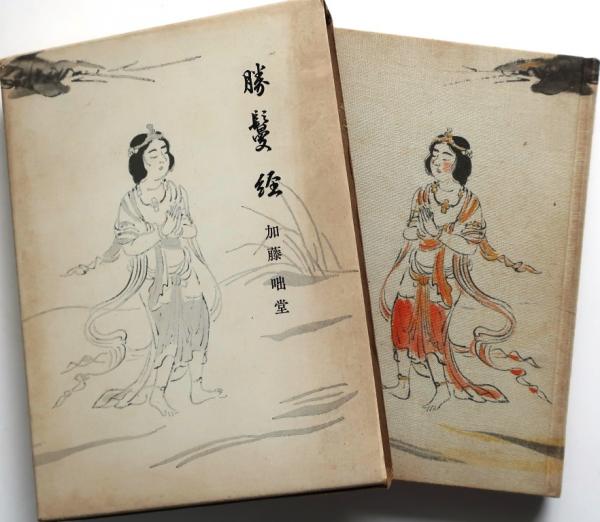 勝鬘経
加藤咄堂